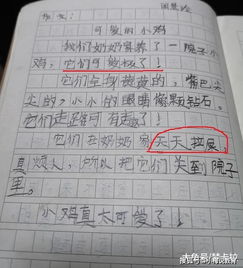 作文:
可爱的小鸡
我们奶奶家养了一院子小
鸡,它们可教极了!
它们全身黄黄的,嘴巴尖
尖的,小小的眼睛像颗钻石。
它们走路可有趣了!
它们在奶奶家天天拉屎
真烦人,所以把它们关到院子
里。
小鸡真太可爱了!
大鱼号/楚卡较